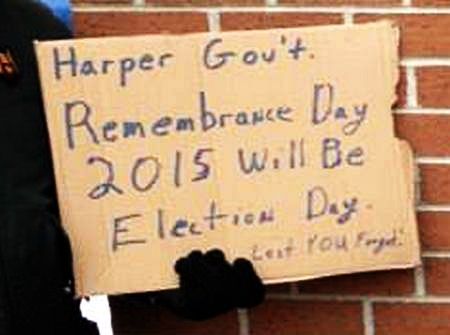 Harper Gov't.
Remembrance Day
2015 Will Be
Election Day.
Lest YOU Forget!